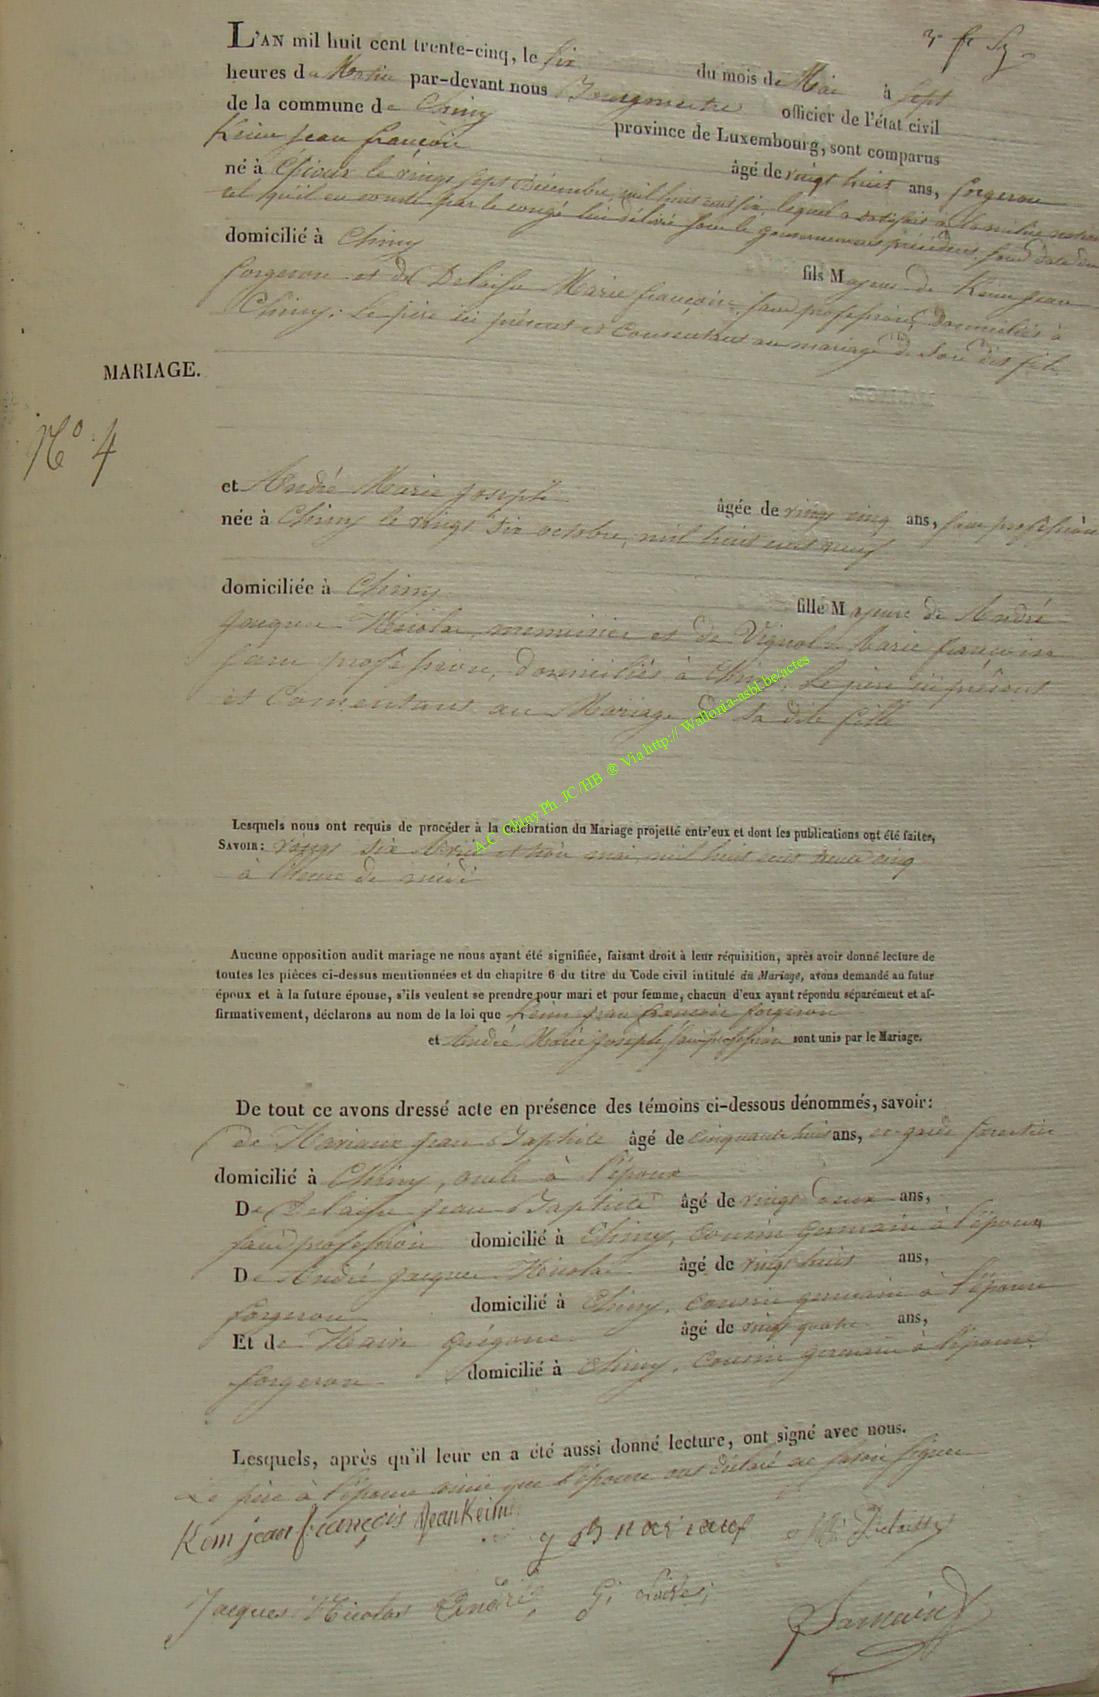 L'AN mil huit cent trente-cinq, le six du mois de Mai à sept
heures du Matin par-devant nous Bourgmestre officier de l'état civil
de la commune de Chiny province de Luxembourg, sont comparus
Keim Jean françois âgé de vingt huit ans, forgeron
né à le vingt sept Décembre, mil huit cent six, lequel a satisfait à la milice
tel qu'il en conste par le congé lui délivré sous le gouvernement précédent,
domicilié à Chiny fils Majeur de Keim Jean
forgeron et de Delaisse Marie françoise, sans profession, domiciliés à
Chiny. Le père ici présent et Consentant au mariage de son dit fils
MARIAGE.
N° 4
et André Marie Joseph âgée de vingt cinq ans, sans profession
née à Chiny le vingt six octobre, mil huit cent neuf
domiciliée à Chiny fille Majeure de André
Jacques Nicolas, menuisier et de Marie françoise
sans profession, domiciliés à Chiny. Le père ici présent
et Consentant au Mariage de sa dite fille
A.C. Chiny Ph. JC/HB ® Via http:// Wallonia-asbl.be/actes
Lesquels nous ont requis de procéder à la célébration du Mariage projetté entr'eux et dont les publications ont été faites,
SAVOIR: vingt six Avril et trois mai, mil huit cent trente cinq
à l'heure de midi
Aucune opposition audit mariage ne nous ayant été signifiée, faisant droit à leur réquisition, après avoir donné lecture de
toutes les pièces ci-dessus mentionnées et du chapitre 6 du titre du Code civil intitulé du Mariage, avons demandé au futur
époux et à la future épouse, s'ils veulent se prendre pour mari et pour femme, chacun d'eux ayant répondu séparément et af-
firmativement, déclarons au nom de la loi que Keim Jean françois forgeron
et André Marie Joseph, sans profession sont unis par le Mariage.
De tout ce avons dressé acte en présence des témoins ci-dessous dénommés, savoir:
de Jean Baptiste âgé de cinquante huit ans, garde forestier
domicilié à Chiny, oncle à l'époux
De Delaisse Jean Baptiste âgé de vingt deux ans,
sans profession domicilié à Chiny, cousin germain à l'époux
De André Jacques Nicolas âgé de vingt huit ans,
forgeron domicilié à Chiny, cousin germain à l'épouse
Et de Grégoire âgé de vingt quatre ans,
forgeron domicilié à Chiny, cousin germain à l'épouse.
Lesquels, après qu'il leur en a été aussi donné lecture, ont signé avec nous.
Le père à l'épouse ainsi que l'épouse ont déclaré ne savoir signer
Kem jean françois Jean Keim
Jacques Nicolas André